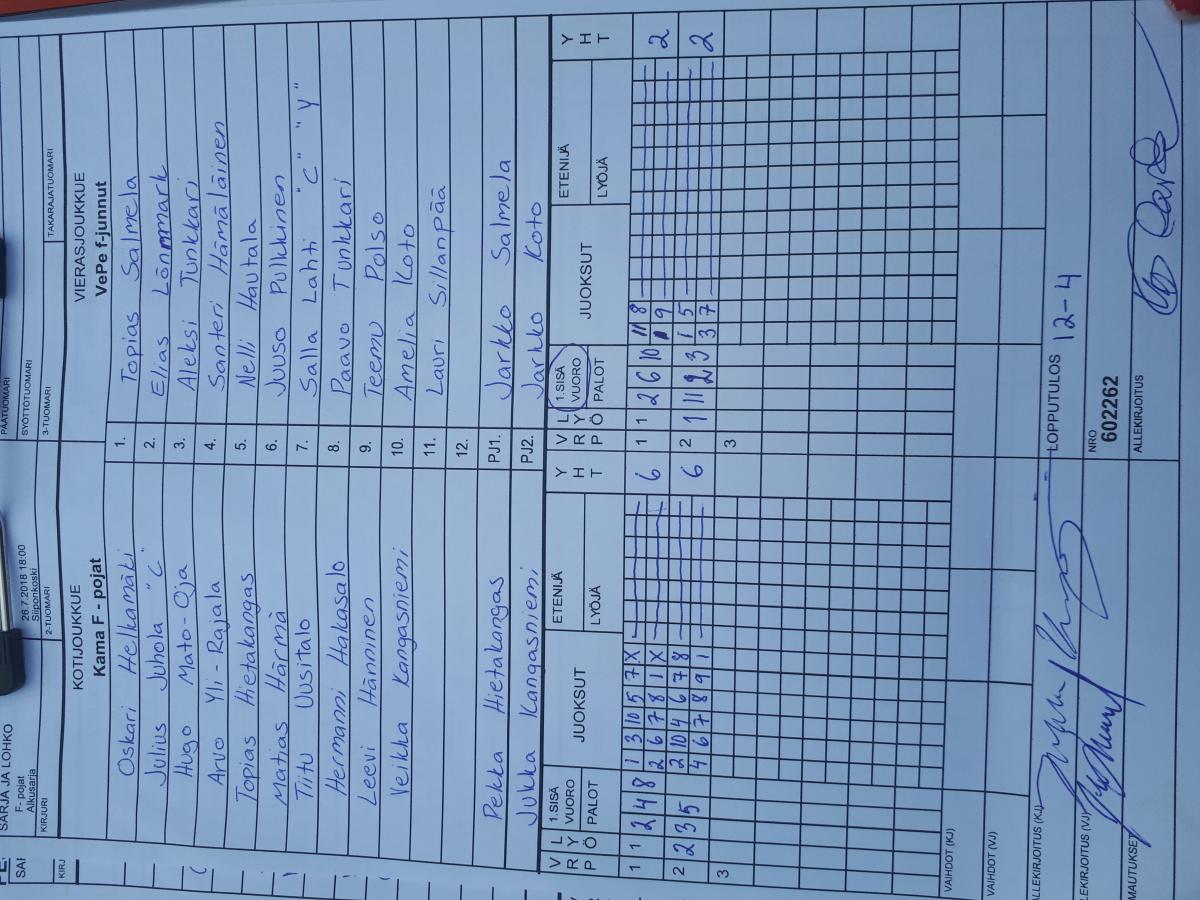 SARJA JA LOHKO
F- pojat
Alkusarja
26.7.2018 18:00
Siiponkoski
PÄÄTUOMARI
SYÖTTÖTUOMARI
KIRJURI
2-TUOMARI
3-TUOMARI
TAKARAJATUOMARI
KOTIJOUKKUE
VIERASJOUKKUE
Kama F - pojat
VePe f-junnut
Oskari Helkamäki 1. Topias Salmela
Julius Juhola "C" 2. Elias Lönnmark
Hugo Mato-Oja 3. Aleksi Tunkkari
Arvo Yli-Rajala 4. Santeri Hämäläinen
Topias Hietakangas 5. Nelli Hautala
Matias Härmä 6. Juuso Pulkkinen
Tiitu Uusitalo 7. Salla Lahti "C" "Y"
Hermanni Hakasalo 8. Paavo Tunkkari
Leevi Hänninen 9. Teemu Polso
Veikka Kangasniemi 10. Amelia Koto
11. Lauri Sillanpää
12.
Pekka Hietakangas PJ1. Jarkko Salmela
Jukka Kangasniemi PJ2. Jarkko Koto
VRP LYÖ 1.SISÄ VUORO PALOT JUOKSUT ETENIJÄ LYÖJÄ YHT VRP LYÖ 1.SISÄ VUORO PALOT JUOKSUT ETENIJÄ LYÖJÄ YHT
1 1 2 4 8 1 3 10 5 7 X 6 1 1 2 6 10 11 8 2
2 6 7 8 1 X 9
2 2 3 5 2 10 4 6 7 8 6 2 1 11 2 3 1 5 2
4 6 7 8 9 1 3 7
3 3
VAIHDOT (KJ)
VAIHDOT (VJ)
ALLEKIRJOITUS (KJ) LOPPUTULOS 12-4
ALLEKIRJOITUS (VJ) NRO
602262
HUOMAUTUKSET ALLEKIRJOITUS